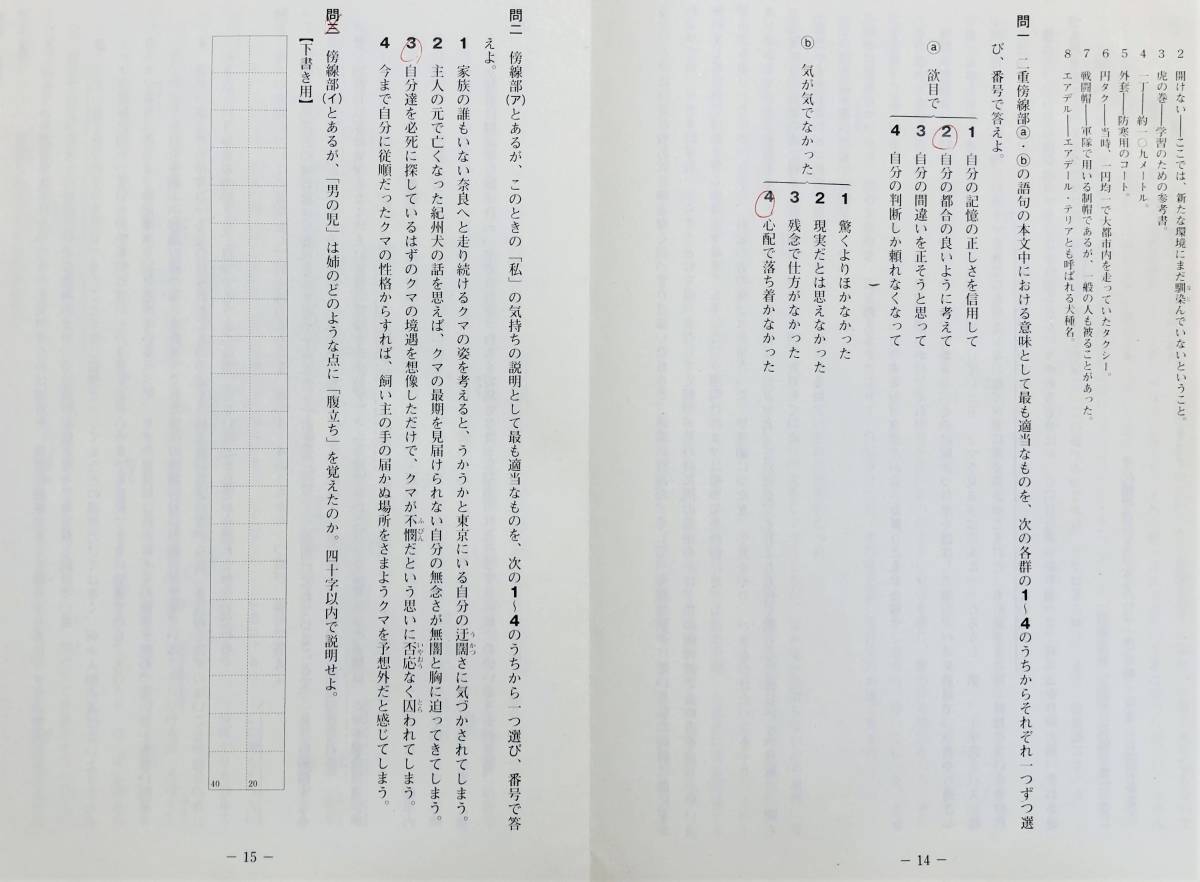 2 開けない――ここでは、新たな環境にまだ馴染んでいないということ。
3 虎の巻――学習のための参考書。
4 一丁――約一〇九メートル。
5 外套――防寒用のコート。
6 円タク――当時、一円均一で大都市内を走っていたタクシー。
7 戦闘帽――軍隊で用いる制帽であるが、一般の人も被ることがあった。
8 エアデル――エアデール・テリアとも呼ばれる犬種名。
問一 二重傍線部ⓐ・ⓑの語句の本文中における意味として最も適当なものを、次の各群の1〜4のうちからそれぞれ一つずつ選
び、番号で答えよ。
ⓐ 欲目で
1 自分の記憶の正しさを信用して
2 自分の都合の良いように考えて
3 自分の間違いを正そうと思って
4 自分の判断しか頼れなくなって
ⓑ 気が気でなかった
1 驚くよりほかなかった
2 現実だとは思えなかった
3 残念で仕方がなかった
4 心配で落ち着かなかった
― 14 ―
問二 傍線部(ア)とあるが、このときの「私」の気持ちの説明として最も適当なものを、次の1〜4のうちから一つ選び、番号で答
えよ。
1 家族の誰もいない奈良へと走り続けるクマの姿を考えると、うかうかと東京にいる自分の迂闊さに気づかされてしまう。
2 主人の元で亡くなった紀州犬の話を思えば、クマの最期を見届けられない自分の無念さが無闇と胸に迫ってきてしまう。
3 自分達を必死に探しているはずのクマの境遇を想像しただけで、クマが不憫だという思いに否応なく囚われてしまう。
4 今まで自分に従順だったクマの性格からすれば、飼い主の手の届かぬ場所をさまようクマを予想外だと感じてしまう。
問三 傍線部(イ)とあるが、「男の児」は姉のどのような点に「腹立ち」を覚えたのか。四十字以内で説明せよ。
【下書き用】
20
40
― 15 ―